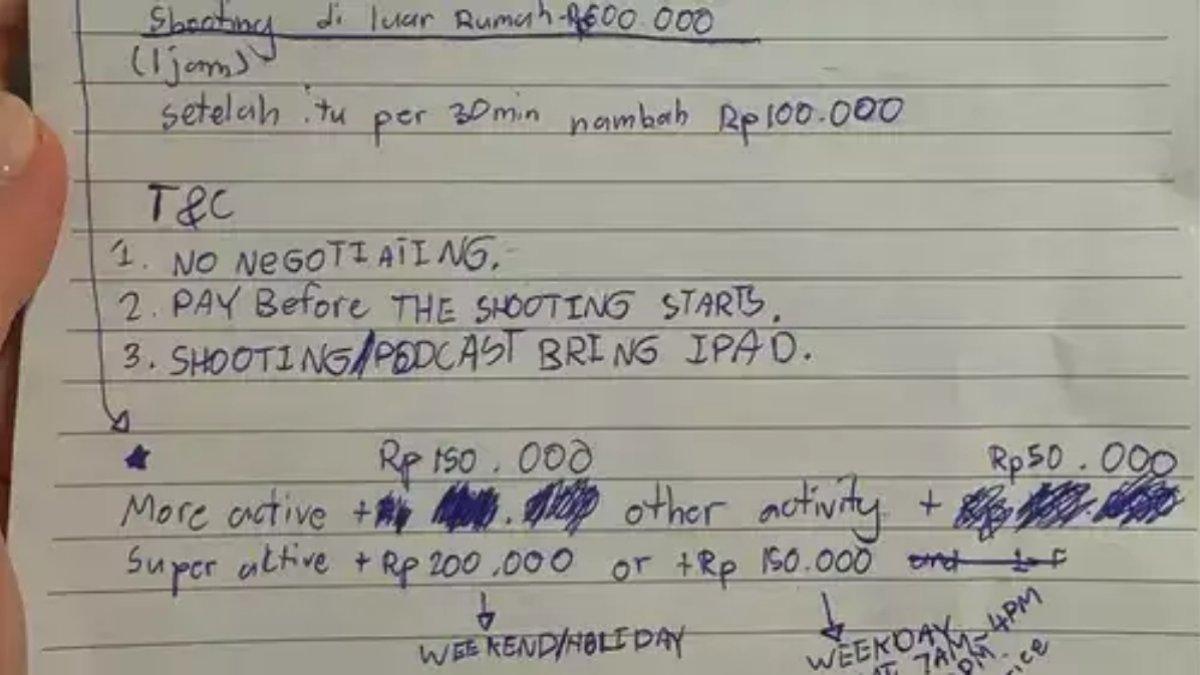 Shooting di luar Rumah-Rp600.000
(1 jam)
setelah itu per 30min nambah Rp100.000
T&C
1. NO NEGOTIATING.
2. PAY Before THE SHOOTING STARTS.
3. SHOOTING/PODCAST BRING IPAD.
Rp 150.000 Rp50.000
More active + other activity +
Super aktive + Rp 200.000 or +Rp 150.000
WEEKEND/HOLIDAY
WEEKDAY
7AM-4PM